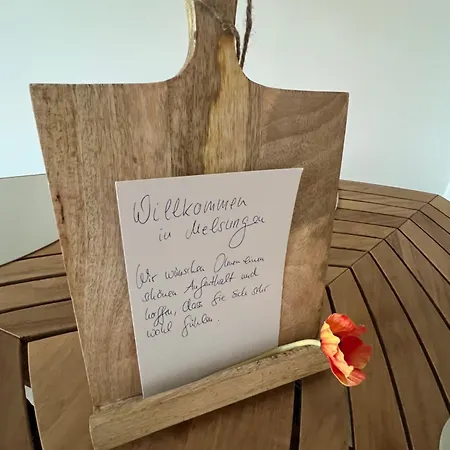 Willkommen
in Melsungen
Wir wünschen Ihnen einen
schönen Aufenthalt und
hoffen, dass Sie sich sehr
wohl fühlen.